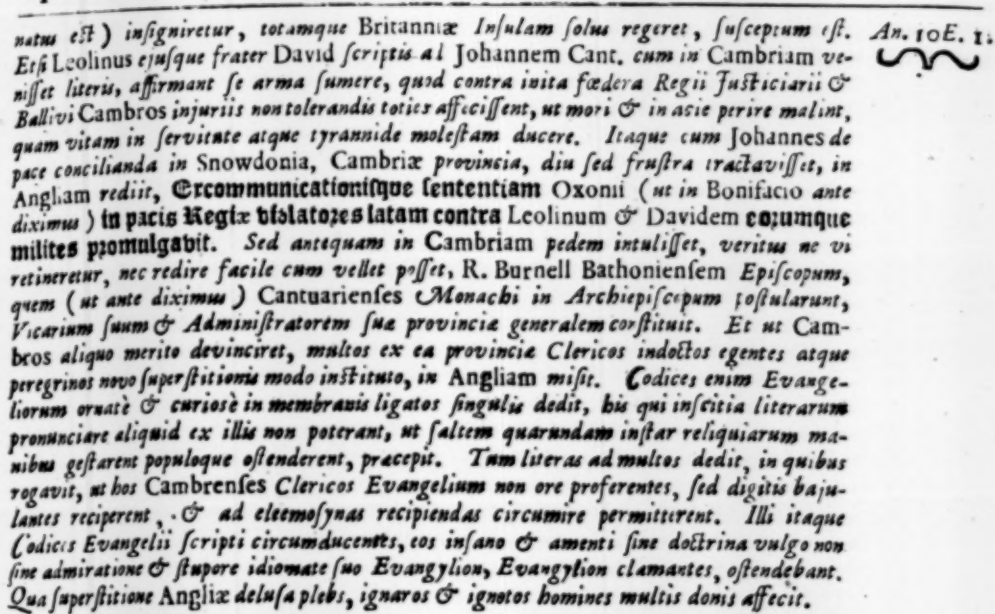 natus eſt ) inſigniretur, totamque Britanniæ Inſulam ſolus regeret, ſuſceptum eſt. An. 10 E. 1.
Etſi Leolinus ejuſque frater David ſcriptis al Johannem Cant. cum in Cambriam ve-
niſſet literis, affirmant ſe arma ſumere, quod contra inita fœdera Regii Juſticiarii &
Ballivi Cambros injuriis non tolerandis toties affeciſſent, ut mori & in acie perire malint,
quam vitam in ſervitute atque tyrannide moleſtam ducere. Itaque cum Johannes de
pace concilianda in Snowdonia, Cambriæ provincia, diu ſed fruſtra tractaviſſet, in
Angliam rediit, Excommunicationiſque ſententiam Oxonii ( ut in Bonifacio ante
diximus ) in pacis Regiæ violatores latam contra Leolinum & Davidem eorumque
milites promulgavit. Sed antequam in Cambriam pedem intuliſſet, veritus ne vi
retineretur, nec redire facile cum vellet poſſet, R. Burnell Bathonienſem Epiſcopum,
quem ( ut ante diximus ) Cantuarienſes Monachi in Archiepiſcopum poſtularunt,
Vicarium ſuum & Adminiſtratorem ſuæ provinciæ generalem conſtituit. Et ut Cam-
bros aliquo merito devinciret, multos ex ea provincia Clericos indoctos egentes atque
peregrinos novo ſuperſtitionis modo inſtituto, in Angliam miſit. Codices enim Evange-
liorum ornatè & curioſè in membranis ligatos ſingulis dedit, his qui inſcitia literarum
pronunciare aliquid ex illis non poterant, ut ſaltem quarundam inſtar reliquiarum ma-
nibus geſtarent populoque oſtenderent, præcepit. Tum literas ad multos dedit, in quibus
rogavit, ut hos Cambrenſes Clericos Evangelium non ore proferentes, ſed digitis baju-
lantes reciperent, & ad eleemoſynas recipiendas circumire permitterent. Illi itaque
Codices Evangelii ſcripti circumducentes, eos inſano & amenti ſine doctrina vulgo non
ſine admiratione & ſtupore idiomate ſuo Evangylion, Evangylion clamantes, oſtendebant.
Qua ſuperſtitione Angliæ deluſa plebs, ignaros & ignotos homines multis donis affecit.